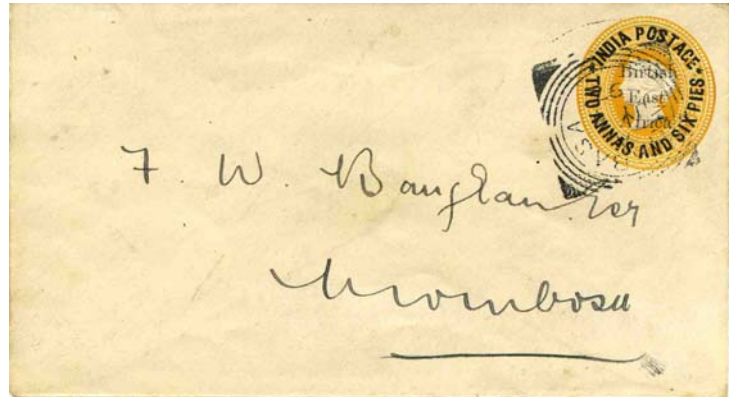 INDIA POSTAGE
TWO ANNAS AND SIX PIES
British
East
Africa
F. W.
Mombasa